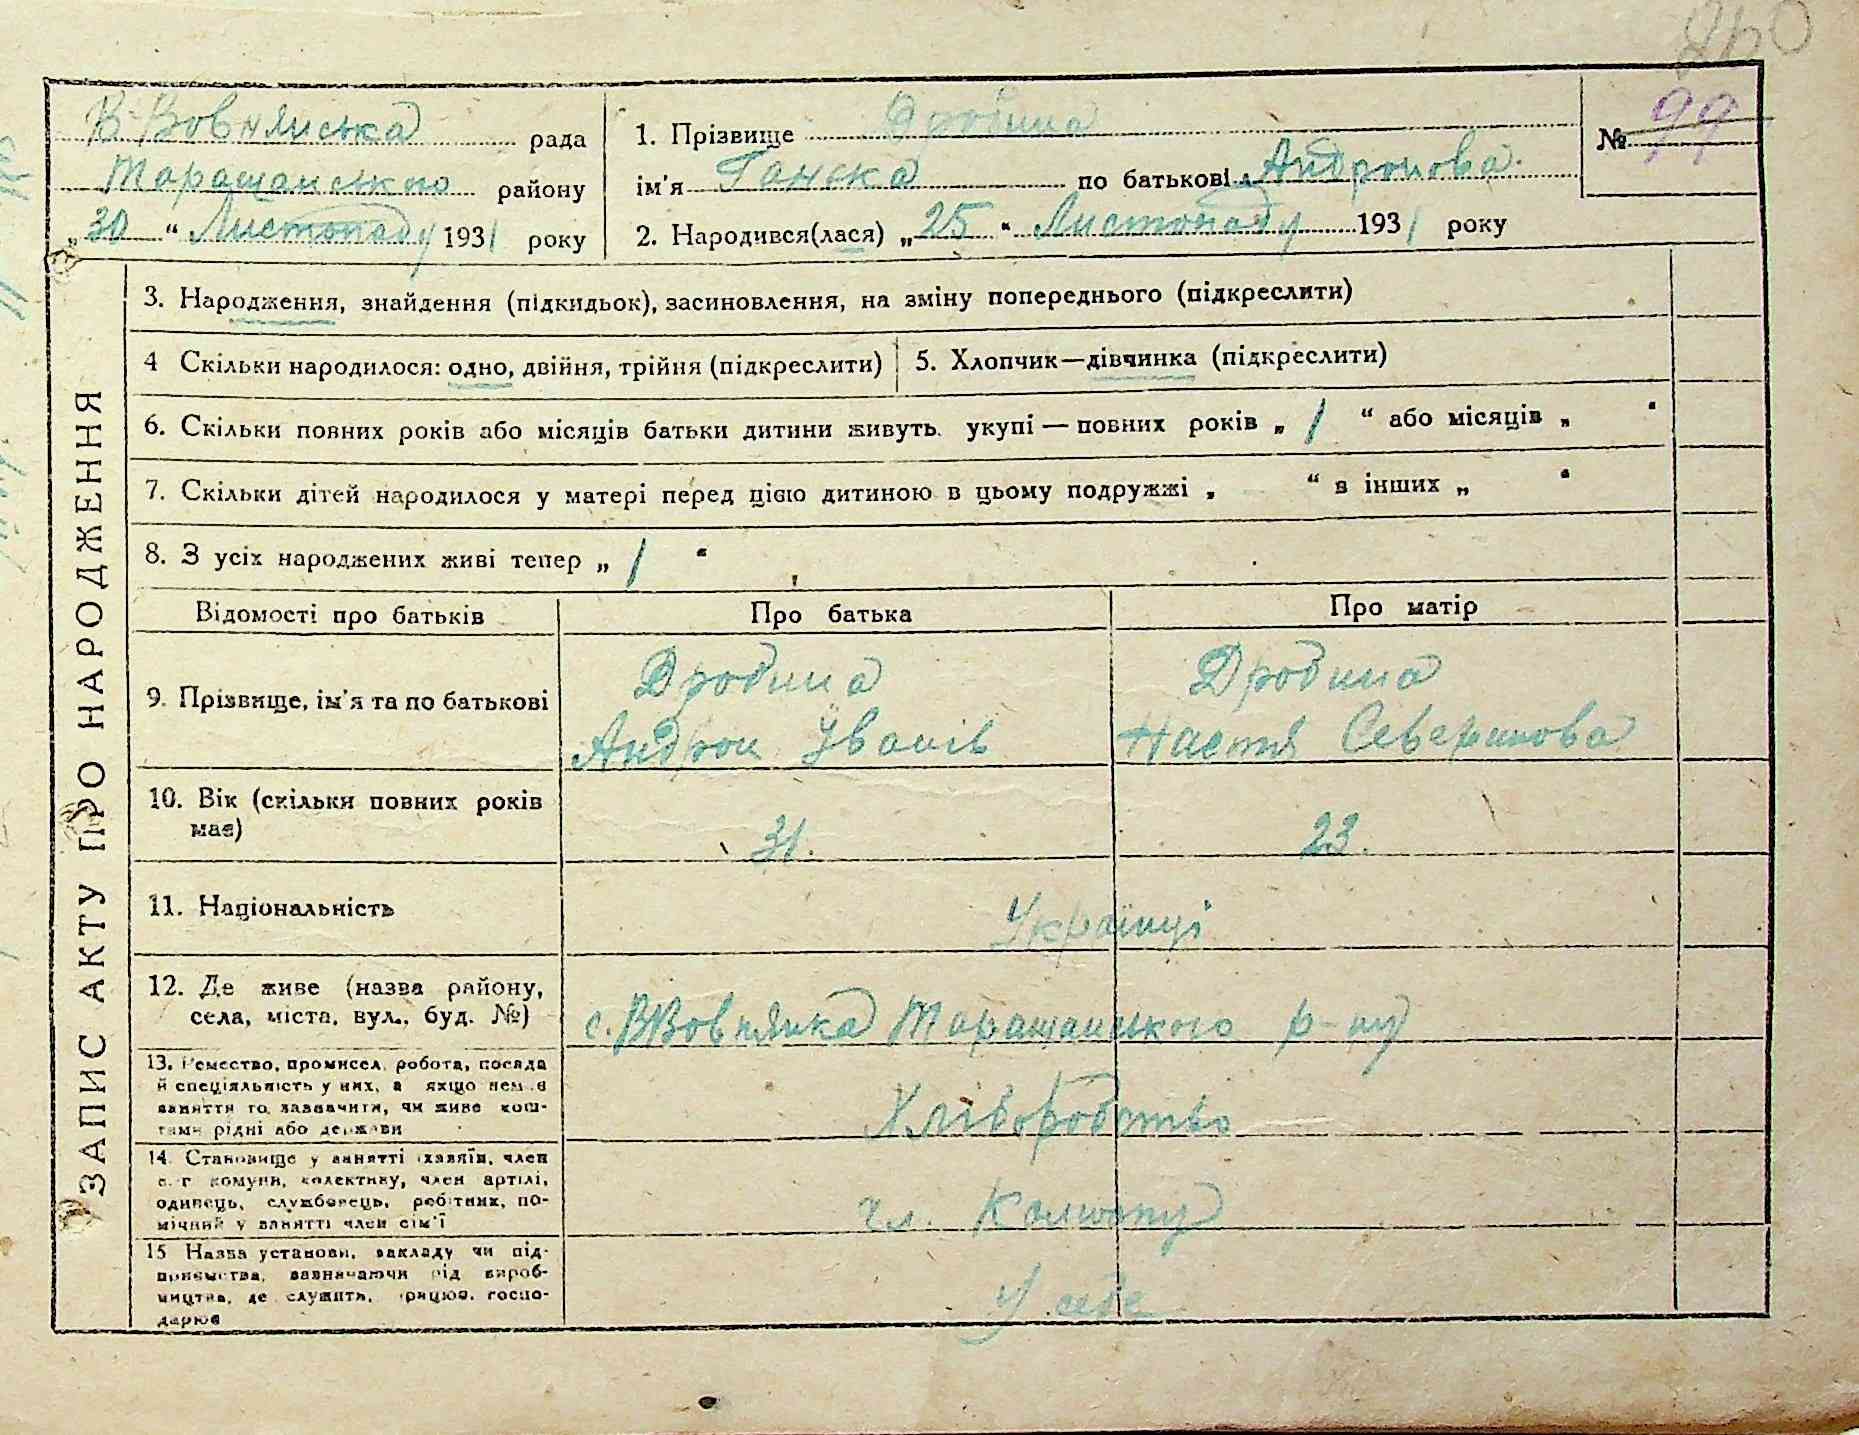 260
В-Вовнянська рада
Таращанського району
„30“ Листопаду 1931 року
1. Прізвище Дробина
ім'я Ганска по батькові Андронова
№ 99
2. Народився(лася) „25“ Листопаду 1931 року
ЗАПИС АКТУ ПРО НАРОДЖЕННЯ
3. Народження, знайдення (підкидьок), засиновлення, на зміну попереднього (підкреслити)
4 Скільки народилося: одно, двійня, трійня (підкреслити)
5. Хлопчик—дівчинка (підкреслити)
6. Скільки повних років або місяців батьки дитини живуть укупі — повних років „ 1 “ або місяців „ “
7. Скільки дітей народилося у матері перед цією дитиною в цьому подружжі „ “ в інших „ “
8. З усіх народжених живі тепер „ 1 “
Відомості про батьків
Про батька
Про матір
9. Прізвище, ім'я та по батькові
Дробина
Андрон Іванів
Дробина
Настя Северинова
10. Вік (скільки повних років
має)
31.
23.
11. Національність
Українці
12. Де живе (назва району,
села, міста, вул., буд. №)
с. ВВовнянка Таращанського р-ну
13. Ремество, промисел, робота, посада
й спеціяльність у них, а якщо нема
заняття то зазначити, чи живе кош-
тами рідні або держави
Хліборобство
14. Становище у занятті (хазяїн, член
с.-г комуни, колективу, член артілі,
одинець, службовець, робітник, по-
мічний у занятті член сім'ї
чл. Колгоспу
15 Назва установи, закладу чи під-
приємства, зазначаючи рід вироб-
ництва, де служить, працює, госпо-
дарює
У себе